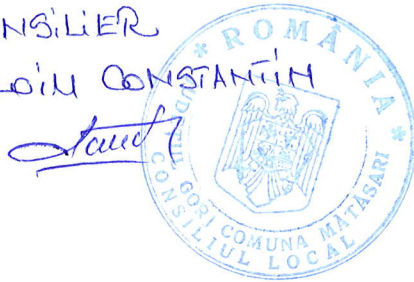 NSILIER
OIM CONSTANTIN
* ROMÂNIA *
JUDEŢUL GORJ COMUNA MĂTĂSARI
CONSILIUL LOCAL